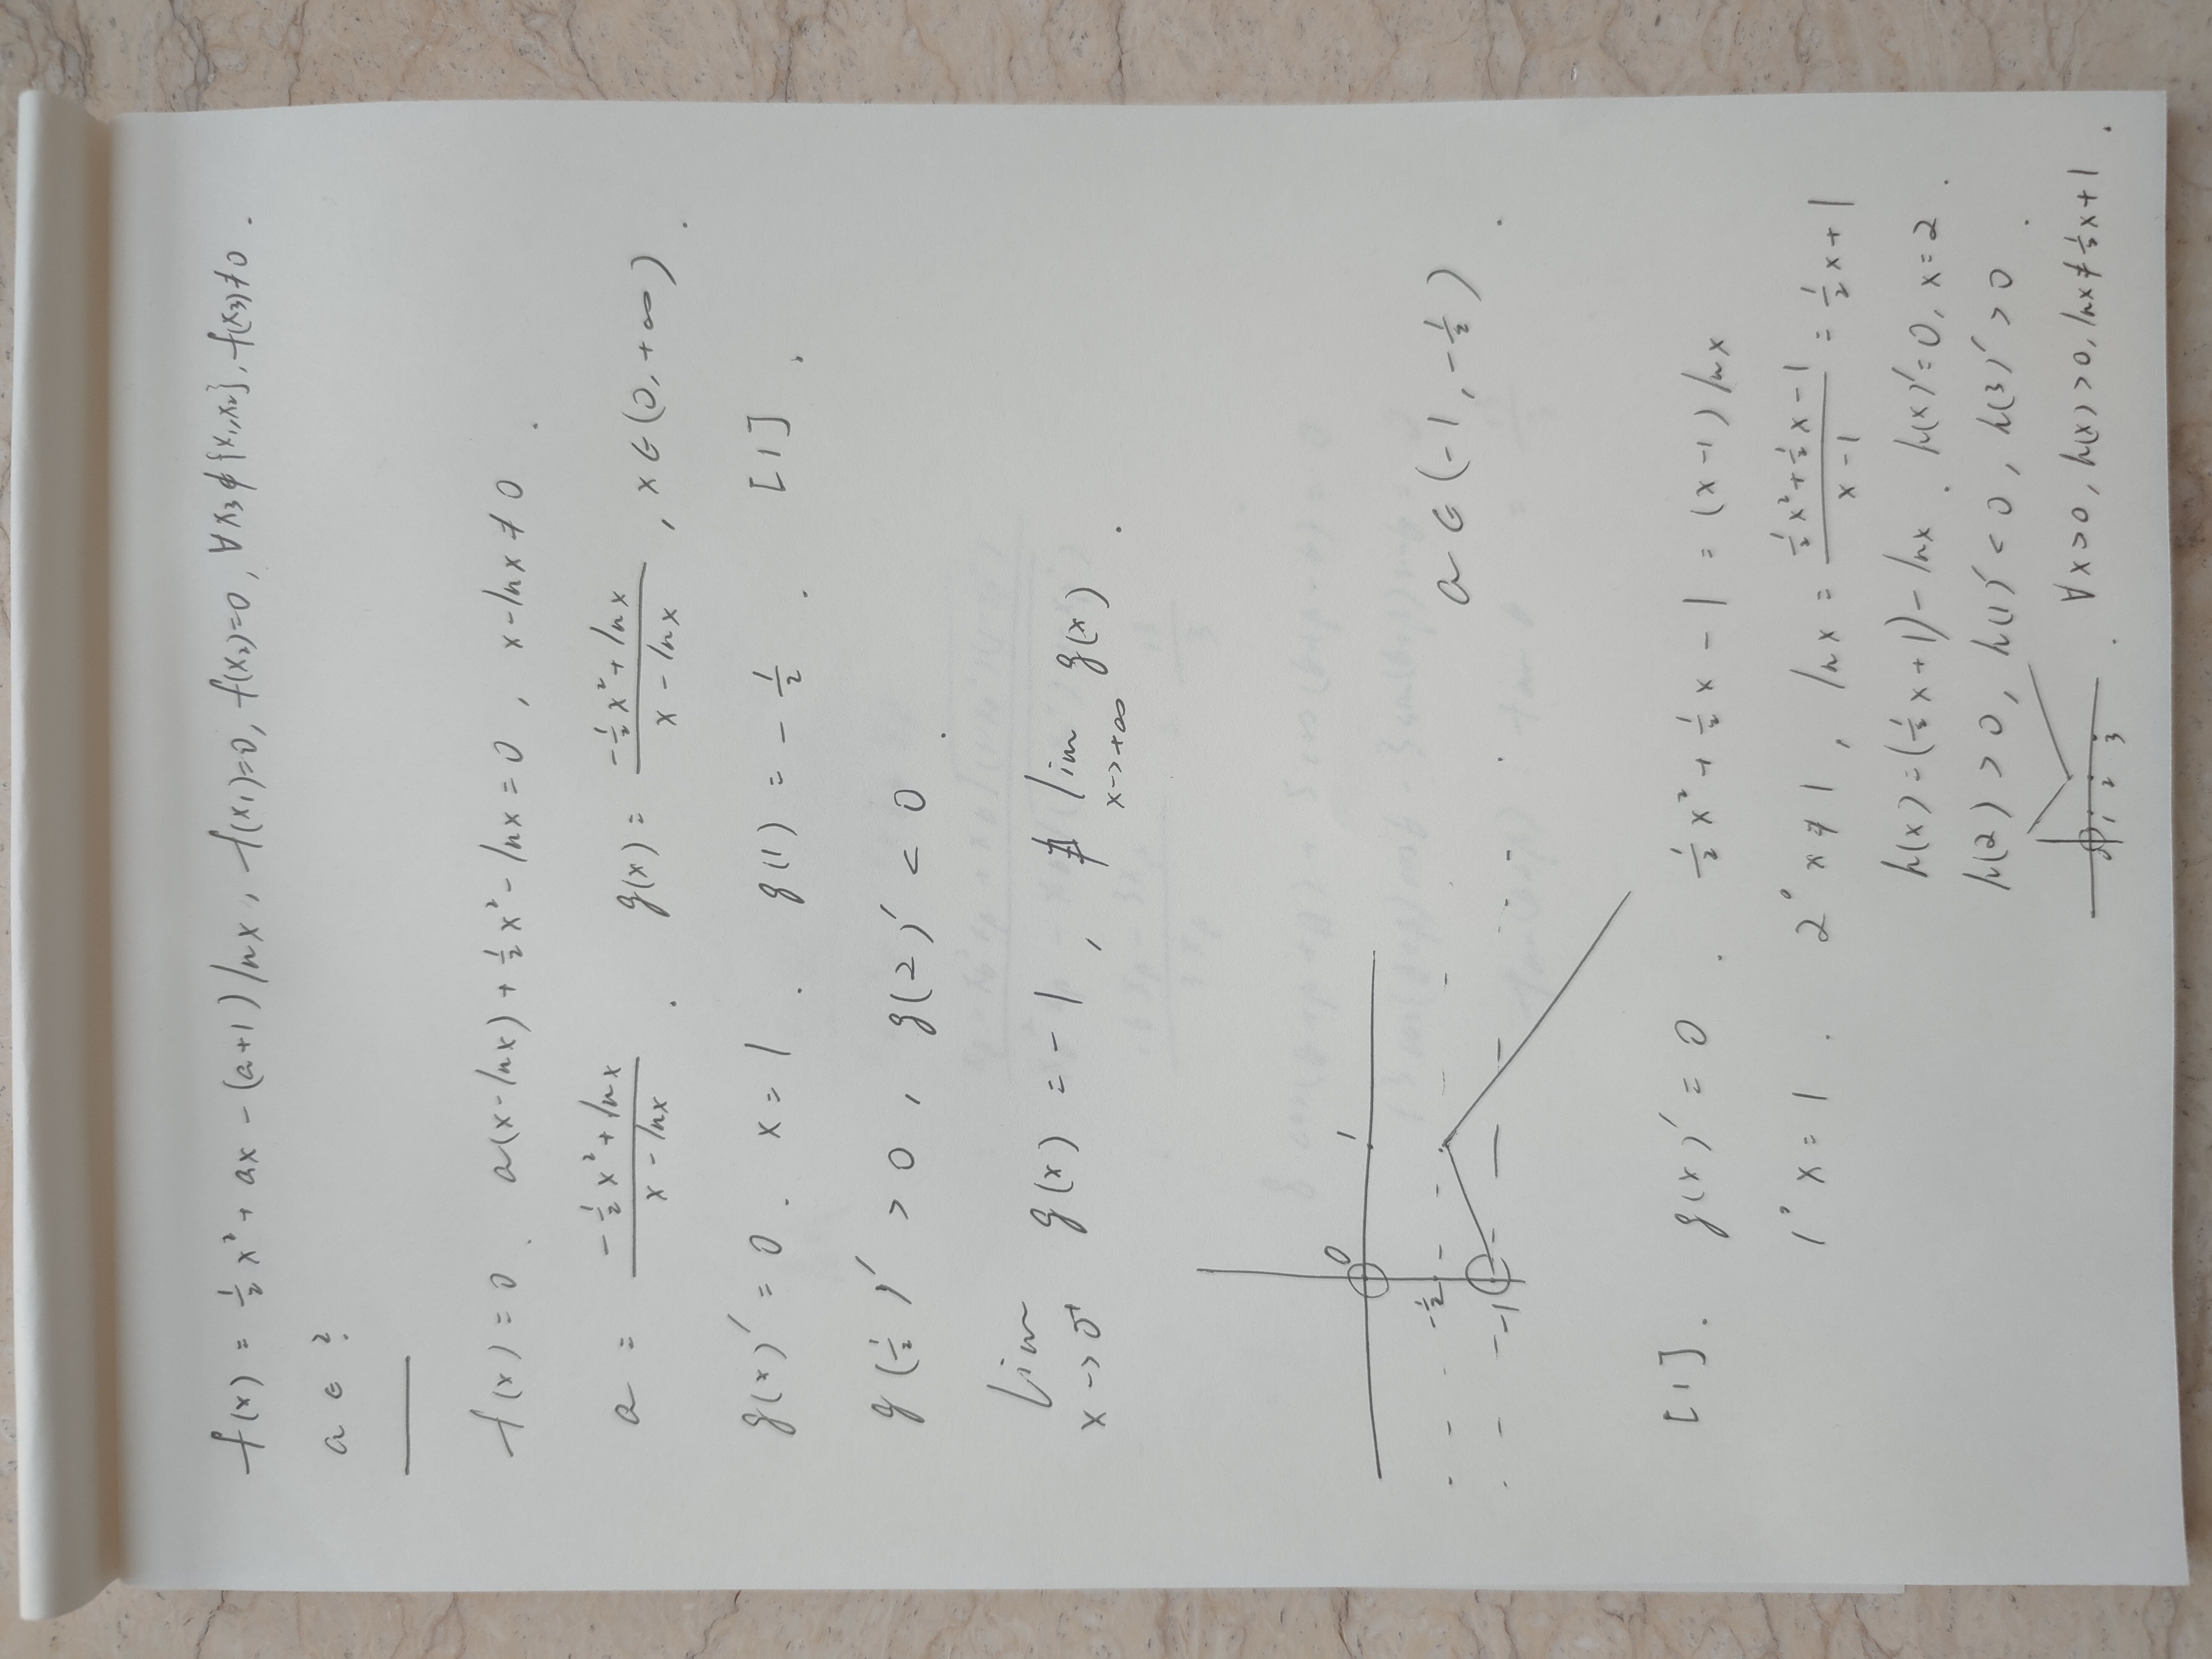 f(x) = ½x² + ax - (a+1)lnx, f(x₁)=0, f(x₂)=0, ∀x₃∉{x₁,x₂}, f(x₃)≠0.
a ∈ ?
f(x)=0. a(x-lnx)+½x²-lnx=0, x-lnx≠0.
a = (-½x²+lnx)/(x-lnx). g(x) = (-½x²+lnx)/(x-lnx), x∈(0,+∞).
g(x)′=0. x=1. g(1)=-½. [1].
g(½)′>0, g(2)′<0.
lim x→0⁺ g(x) = -1, ∄ lim x→+∞ g(x).
0 1
-½
-1
a∈(-1,-½).
[1]. g(x)′=0. ½x²+½x-1=(x-1)lnx
1° x=1. 2° x≠1, lnx = (½x²+½x-1)/(x-1) = ½x+1
h(x)=(½x+1)-lnx. h(x)′=0, x=2.
h(2)>0, h(1)′<0, h(3)′>0.
0 1 2 3 . ∀x>0, h(x)>0, lnx≠½x+1.